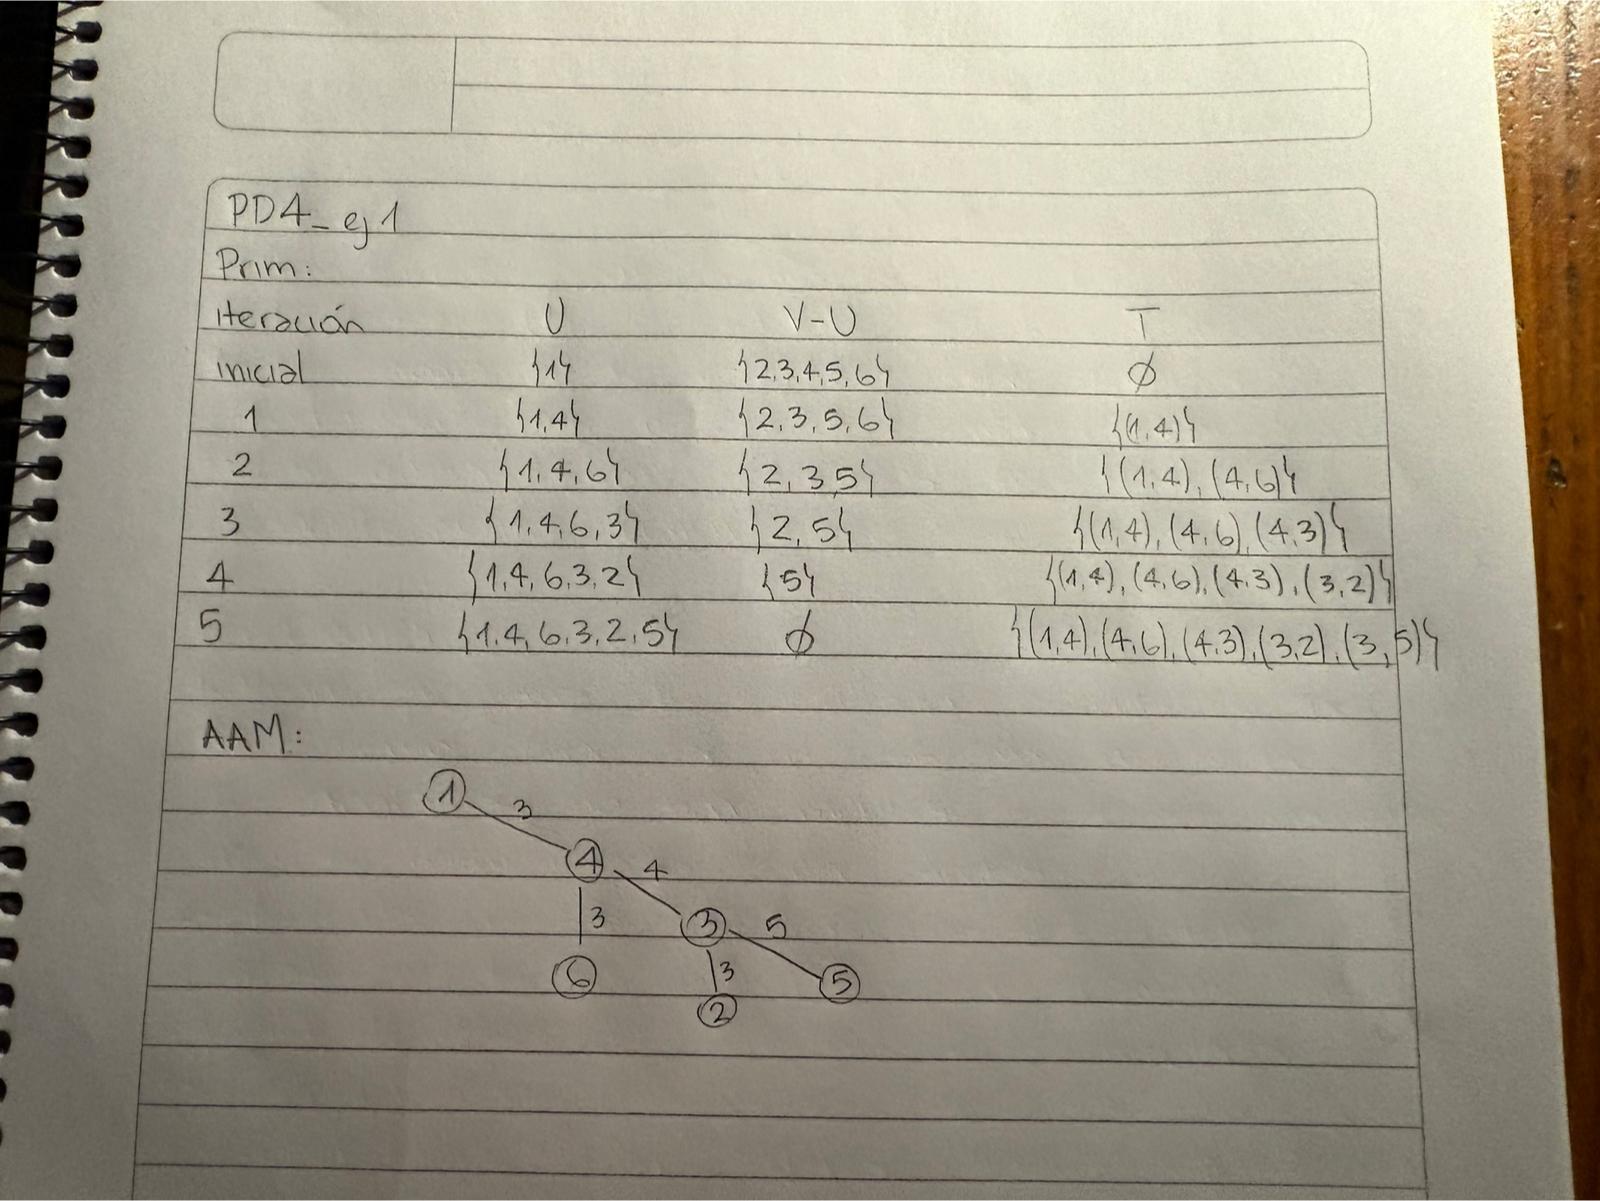 PD4_ej1
Prim:
iteración U V-U T
inicial {1} {2,3,4,5,6} ∅
1 {1,4} {2,3,5,6} {(1,4)}
2 {1,4,6} {2,3,5} {(1,4),(4,6)}
3 {1,4,6,3} {2,5} {(1,4),(4,6),(4,3)}
4 {1,4,6,3,2} {5} {(1,4),(4,6),(4,3),(3,2)}
5 {1,4,6,3,2,5} ∅ {(1,4),(4,6),(4,3),(3,2),(3,5)}
AAM:
1 3
4 4
3 3 5
6 3 5
2